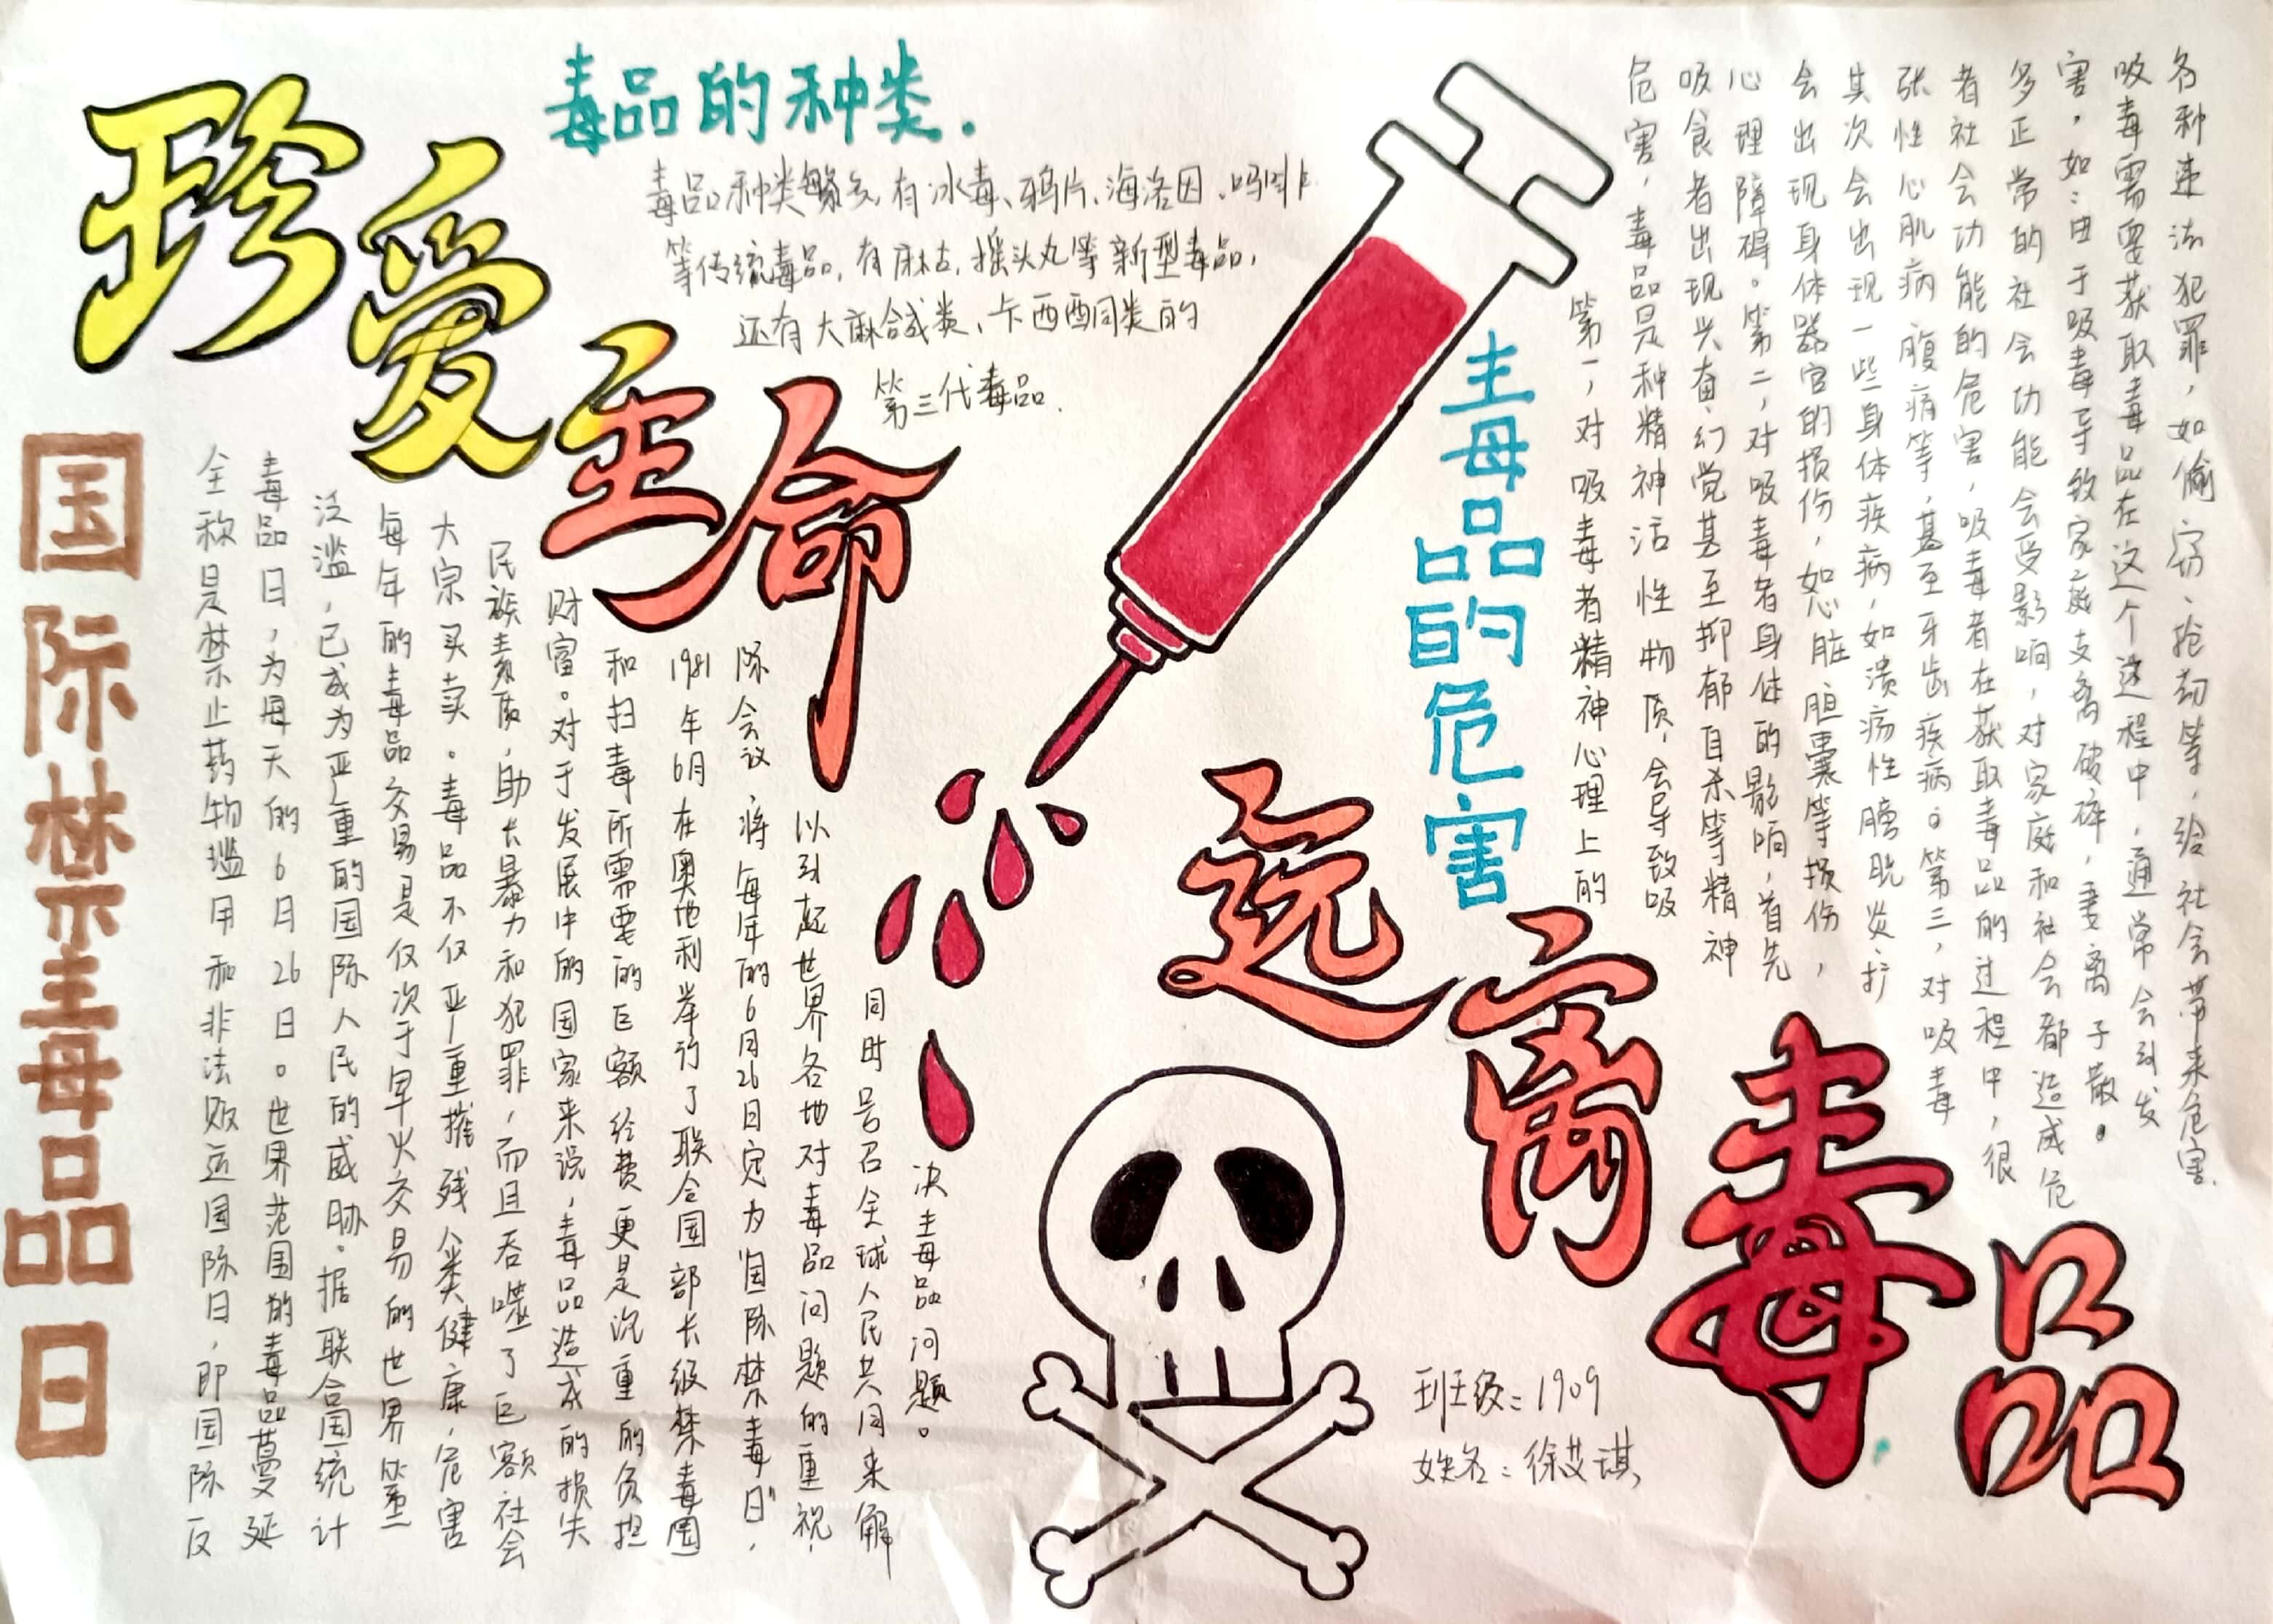 珍爱生命
远离毒品
毒品的种类.
毒品种类繁多,有冰毒、鸦片、海洛因、吗啡
等传统毒品,有麻古,摇头丸等新型毒品,
还有大麻合成类、卡西酮同类的
第三代毒品.
国际禁毒品日
全称是禁止药物滥用和非法贩运国际日,即国际反
毒品日,为每天的6月26日。世界范围的毒品蔓延
泛滥,已成为严重的国际人民的威胁.据联合国统计
每年的毒品交易是仅次于军火交易的世界第二
大宗买卖。毒品不仅严重摧残人类健康,危害
民族素质,助长暴力和犯罪,而且吞噬了巨额社会
财富。对于发展中的国家来说,毒品造成的损失
和扫毒所需要的巨额经费更是沉重的负担
1981年6月在奥地利举行了联合国部长级禁毒国
际会议,将每年的6月26日定为"国际禁毒日",
以引起世界各地对毒品问题的重视,
同时号召全球人民共同来解
决毒品问题。
毒品的危害
第一,对吸毒者精神心理上的
危害,毒品是种精神活性物质,会导致吸
吸食者出现兴奋、幻觉甚至抑郁自杀等精神
心理障碍。第二,对吸毒者身体的影响,首先
会出现身体器官的损伤,如心脏胆囊等损伤,
其次会出现一些身体疾病,如溃疡性膀胱炎、扩
张性心肌病腹痛等,甚至牙齿疾病。第三,对吸毒
者社会功能的危害,吸毒者在获取毒品的过程中,很
多正常的社会功能会受影响,对家庭和社会都造成危
害,如:由于吸毒导致家庭支离破碎,妻离子散。
吸毒需要获取毒品在这个过程中,通常会引发
各种违法犯罪,如偷窃、抢劫等,给社会带来危害.
班级:1909
姓名:徐艾琪